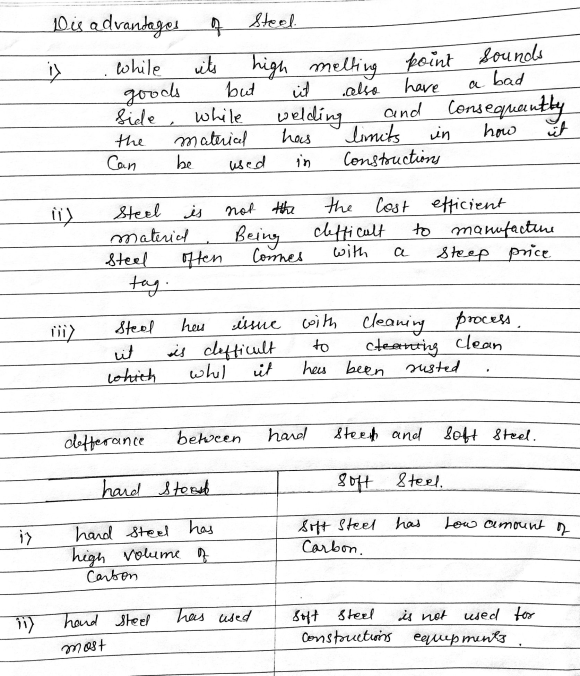 Disadvantages of Steel.
i) . while its high melting point sounds
goods but it also have a bad
side, while welding and Consequantly
the material has limits in how it
Can be used in Constructions
ii) Steel is not the the Cost efficient
material. Being difficult to manufacture
Steel often Comes with a steep price
tag.
iii) Steel has issue with Cleaning process.
it is difficult to cleaning clean
which whil it has been rusted.
differance between hard Steel and Soft Steel.
hard Steel
Soft Steel.
i) hard Steel has
high volume of
Carbon
Soft Steel has Low amount of
Carbon.
ii) hard Steel has used
most
Soft Steel is not used for
Constructions equipments.